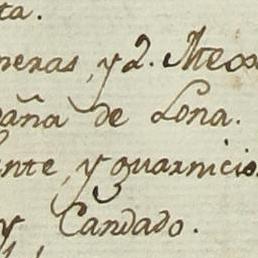 ta.
neras, y 2. Mesa
paña de Lona.
ente, y guarnicio
y Candado.